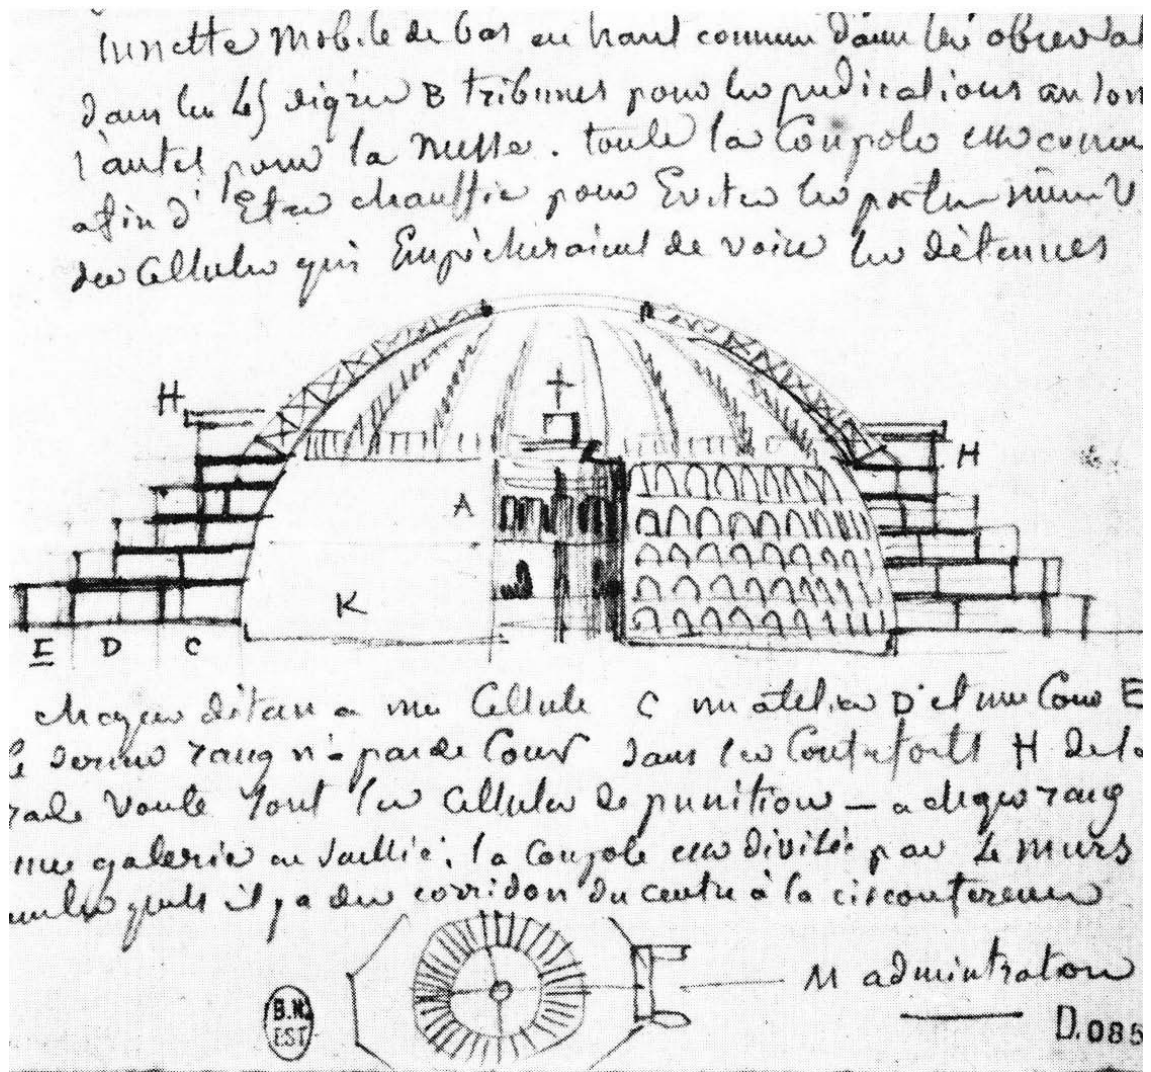 lunette mobile de bas en haut comme dans les observat
dans les 4 B tribunes pour les predications au son
l'autel pour la messe. toute la Coupole est
afin d'Etre chauffée pour Eviter les
des Cellules qui Empêcheraient de voir les détenues
H
H
A
K
E D C
chaque détenu a une Cellule C un atelier D et une Cour E
le dernier rang n'a pas de Cour dans les Contreforts H de la
voute sont les cellules de punition – a chaque rang
une galerie en saillie, la Coupole est divisée par 4 murs
il y a des corridors du centre à la circonference
M admintration
B.N.
EST
D.085